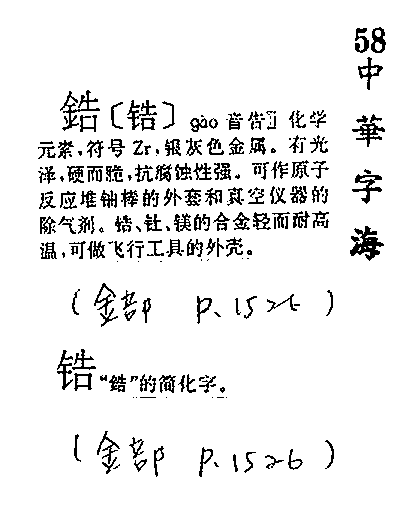 58
中華字海
鋯〔锆〕gào 音告 化学
元素,符号 Zr,银灰色金属。有光
泽,硬而脆,抗腐蚀性强。可作原子
反应堆铀棒的外套和真空仪器的
除气剂。锆、钍、镁的合金轻而耐高
温,可做飞行工具的外壳。
(金部 P.1526)
锆 “鋯”的简化字。
(金部 P.1526)